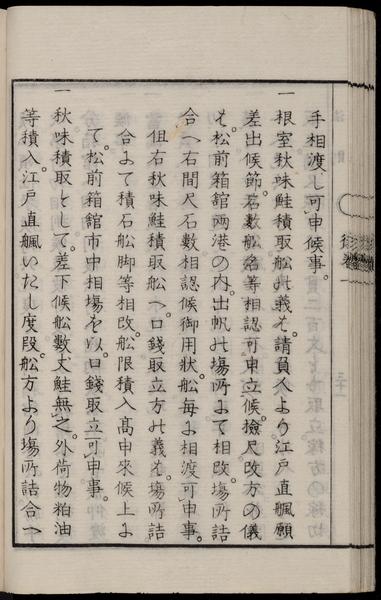 手相渡し可申候事。
一　根室秋味鮭積取舩れ義も。請負人より江戸直颿願
差出候節。石数舩名等相認可申立候。撿尺改方の儀
も。松前箱舘両港の内。出帆れ塲所よて相改。塲所詰
合へ右間尺石数相認候御用状舩毎よ相渡可申事。
但右秋味鮭積取舩へ口錢取立方れ義も。塲所詰
合よて積石舩脚等相改。舩限積入高申来候上よ
て。松前箱舘市中相塲を以口錢取立可申事。
一　秋味積取として。差下候舩数丈鮭無之。外荷物粕油
等積入。江戸直颿いたし度段。舩方より塲所詰合へ